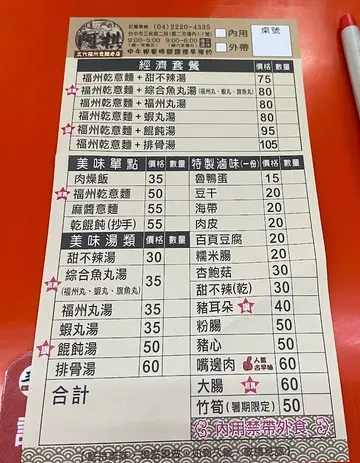 三代福州意麵老店
訂餐專線:(04)2220-4335
台中市三民路二段
9:00-5:00 6:00-9:00
內用
外帶
桌號
經濟套餐 價格 數量
福州乾意麵+甜不辣湯 75
福州乾意麵+綜合魚丸湯(福州丸、蝦丸、旗魚丸) 80
福州乾意麵+福州丸湯 80
福州乾意麵+蝦丸湯 80
福州乾意麵+餛飩湯 95
福州乾意麵+排骨湯 105
美味單點 價格 數量
肉燥飯 35
福州乾意麵 50
麻醬意麵 55
乾餛飩(抄手) 55
美味湯類 價格 數量
甜不辣湯 30
綜合魚丸湯 35
(福州丸、蝦丸、旗魚丸)
福州丸湯 35
蝦丸湯 35
餛飩湯 50
排骨湯 60
合計
特製滷味(一份) 價格 數量
魯鴨蛋 15
豆干 20
海帶 20
肉皮 20
百頁豆腐 20
糯米腸 20
杏鮑菇 30
甜不辣(乾) 30
豬耳朵 40
粉腸 50
豬心 50
嘴邊肉 人氣古早味 60
大腸 60
竹筍(暑期限定) 50
內用禁帶外食